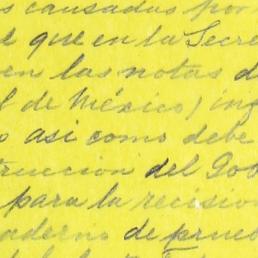 s causadas por
d que en la Secre
en las notas d
l de México) inf
o asi como debe
trucción del Gob
para la recisión
aderno de prueb